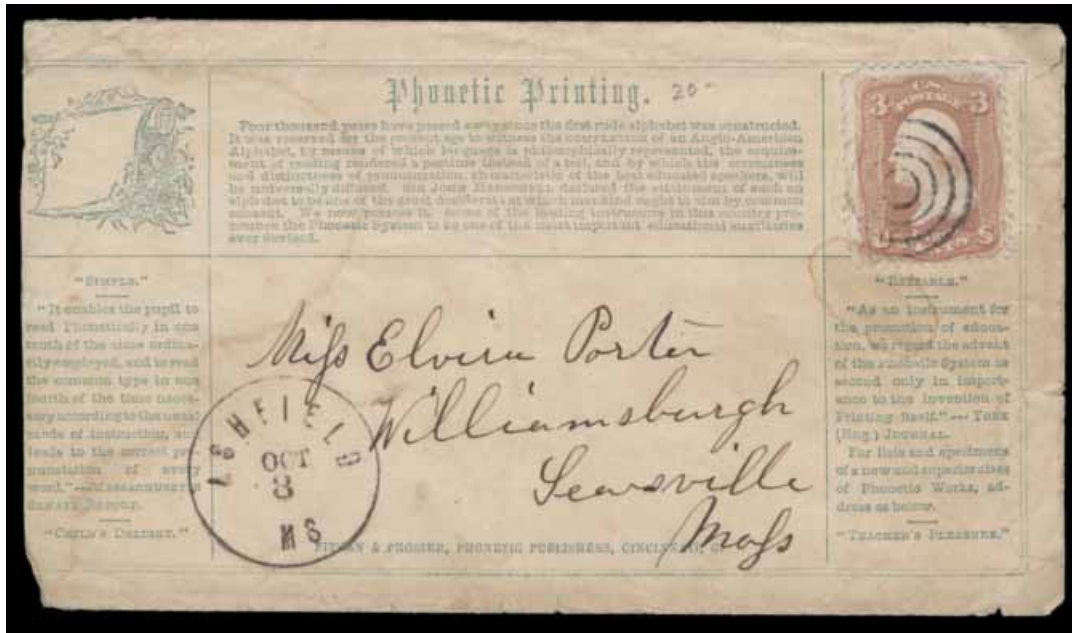 Phonetic Printing. 20-
Four thousand years have passed away since the first rude alphabet was constructed.
It was reserved for the present age to witness the construction of an Anglo-American
Alphabet, by means of which language is philosophically represented, the acquire-
ment of reading rendered a pastime instead of a toil, and by which the correctness
and distinctness of pronunciation, characteristic of the best educated speakers, will
be universally diffused. Sir John Herschel declared the attainment of such an
alphabet to be one of the great desiderata at which mankind ought to aim by common
consent. We now possess it. Some of the leading instructors in this country pro-
nounce the Phonetic System to be one of the most important educational auxiliaries
ever devised.
U.S. POSTAGE
3 3
CENTS
"Simple."
"It enables the pupil to
read Phonetically in one
tenth of the time ordina-
rily employed, and to read
the common type in one
fourth of the time neces-
sary according to the usual
mode of instruction, and
leads to the correct pro-
nunciation of every
word."—Massachusetts
Senate Report.
"Child's Delight."
"Reliable."
"As an instrument for
the promotion of educa-
tion, we regard the advent
of the Phonetic System as
second only in import-
ance to the invention of
Printing itself."—York
(Eng.) Journal.
For lists and specimens
of a new and superior class
of Phonetic Works, ad-
dress as below.
"Teacher's Pleasure."
Miss Elvira Porter
Williamsburgh
Searsville
Mass
ASHFIELD
OCT
8
MS
& PROSSER, PHONETIC PUBLISHERS, CINCINNATI, O.